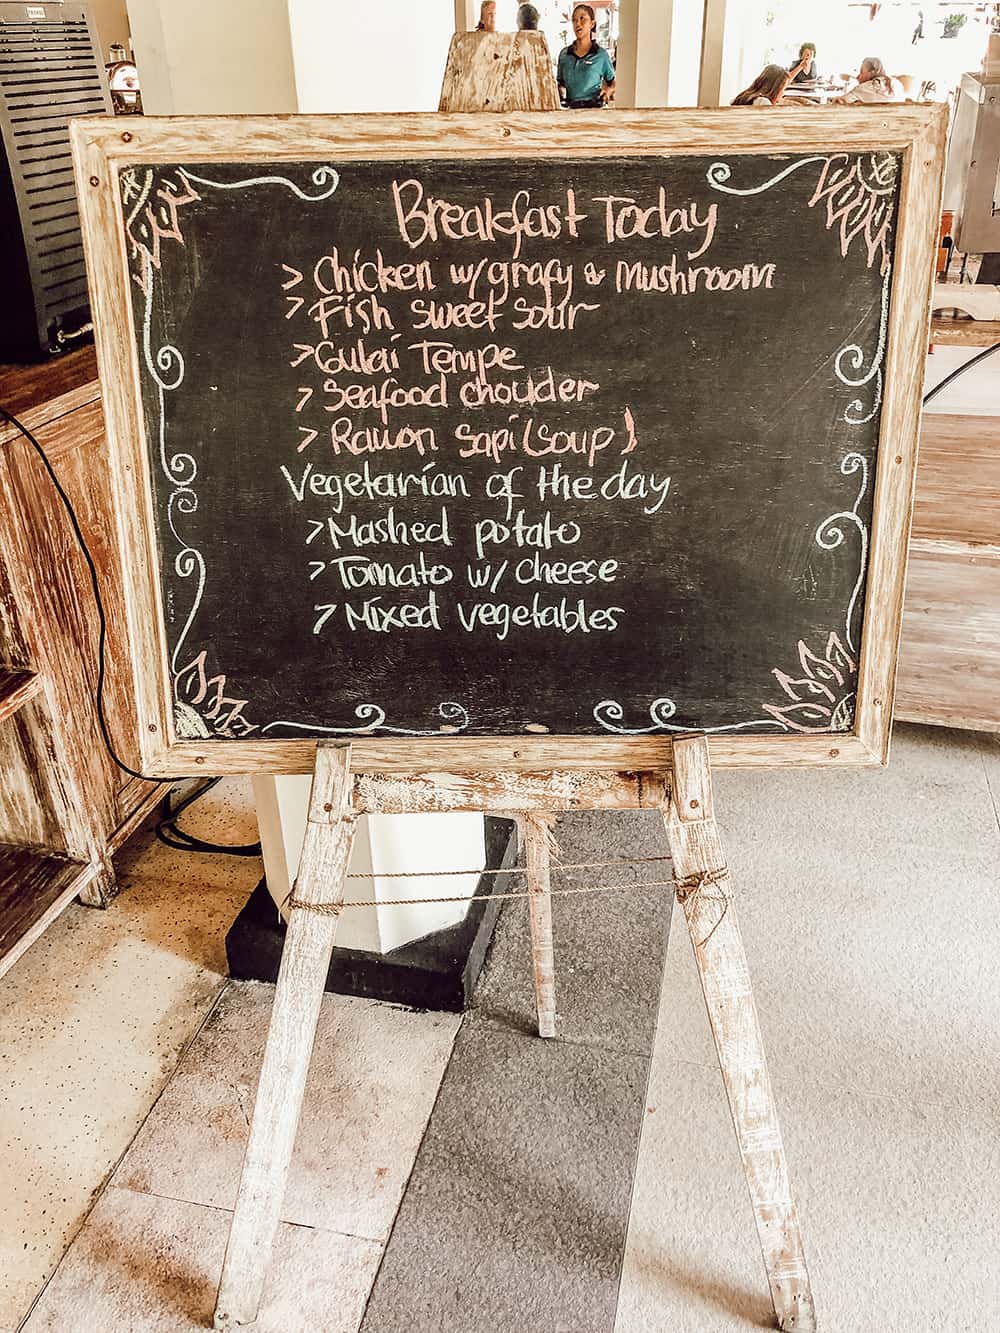 Breakfast Today
> Chicken w/ grafy & Mushroom
> Fish sweet sour
> Gulai Tempe
> Seafood chouder
> Rawon Sapi (soup)
Vegetarian of the day
> Mashed potato
> Tomato w/ cheese
> Mixed vegetables